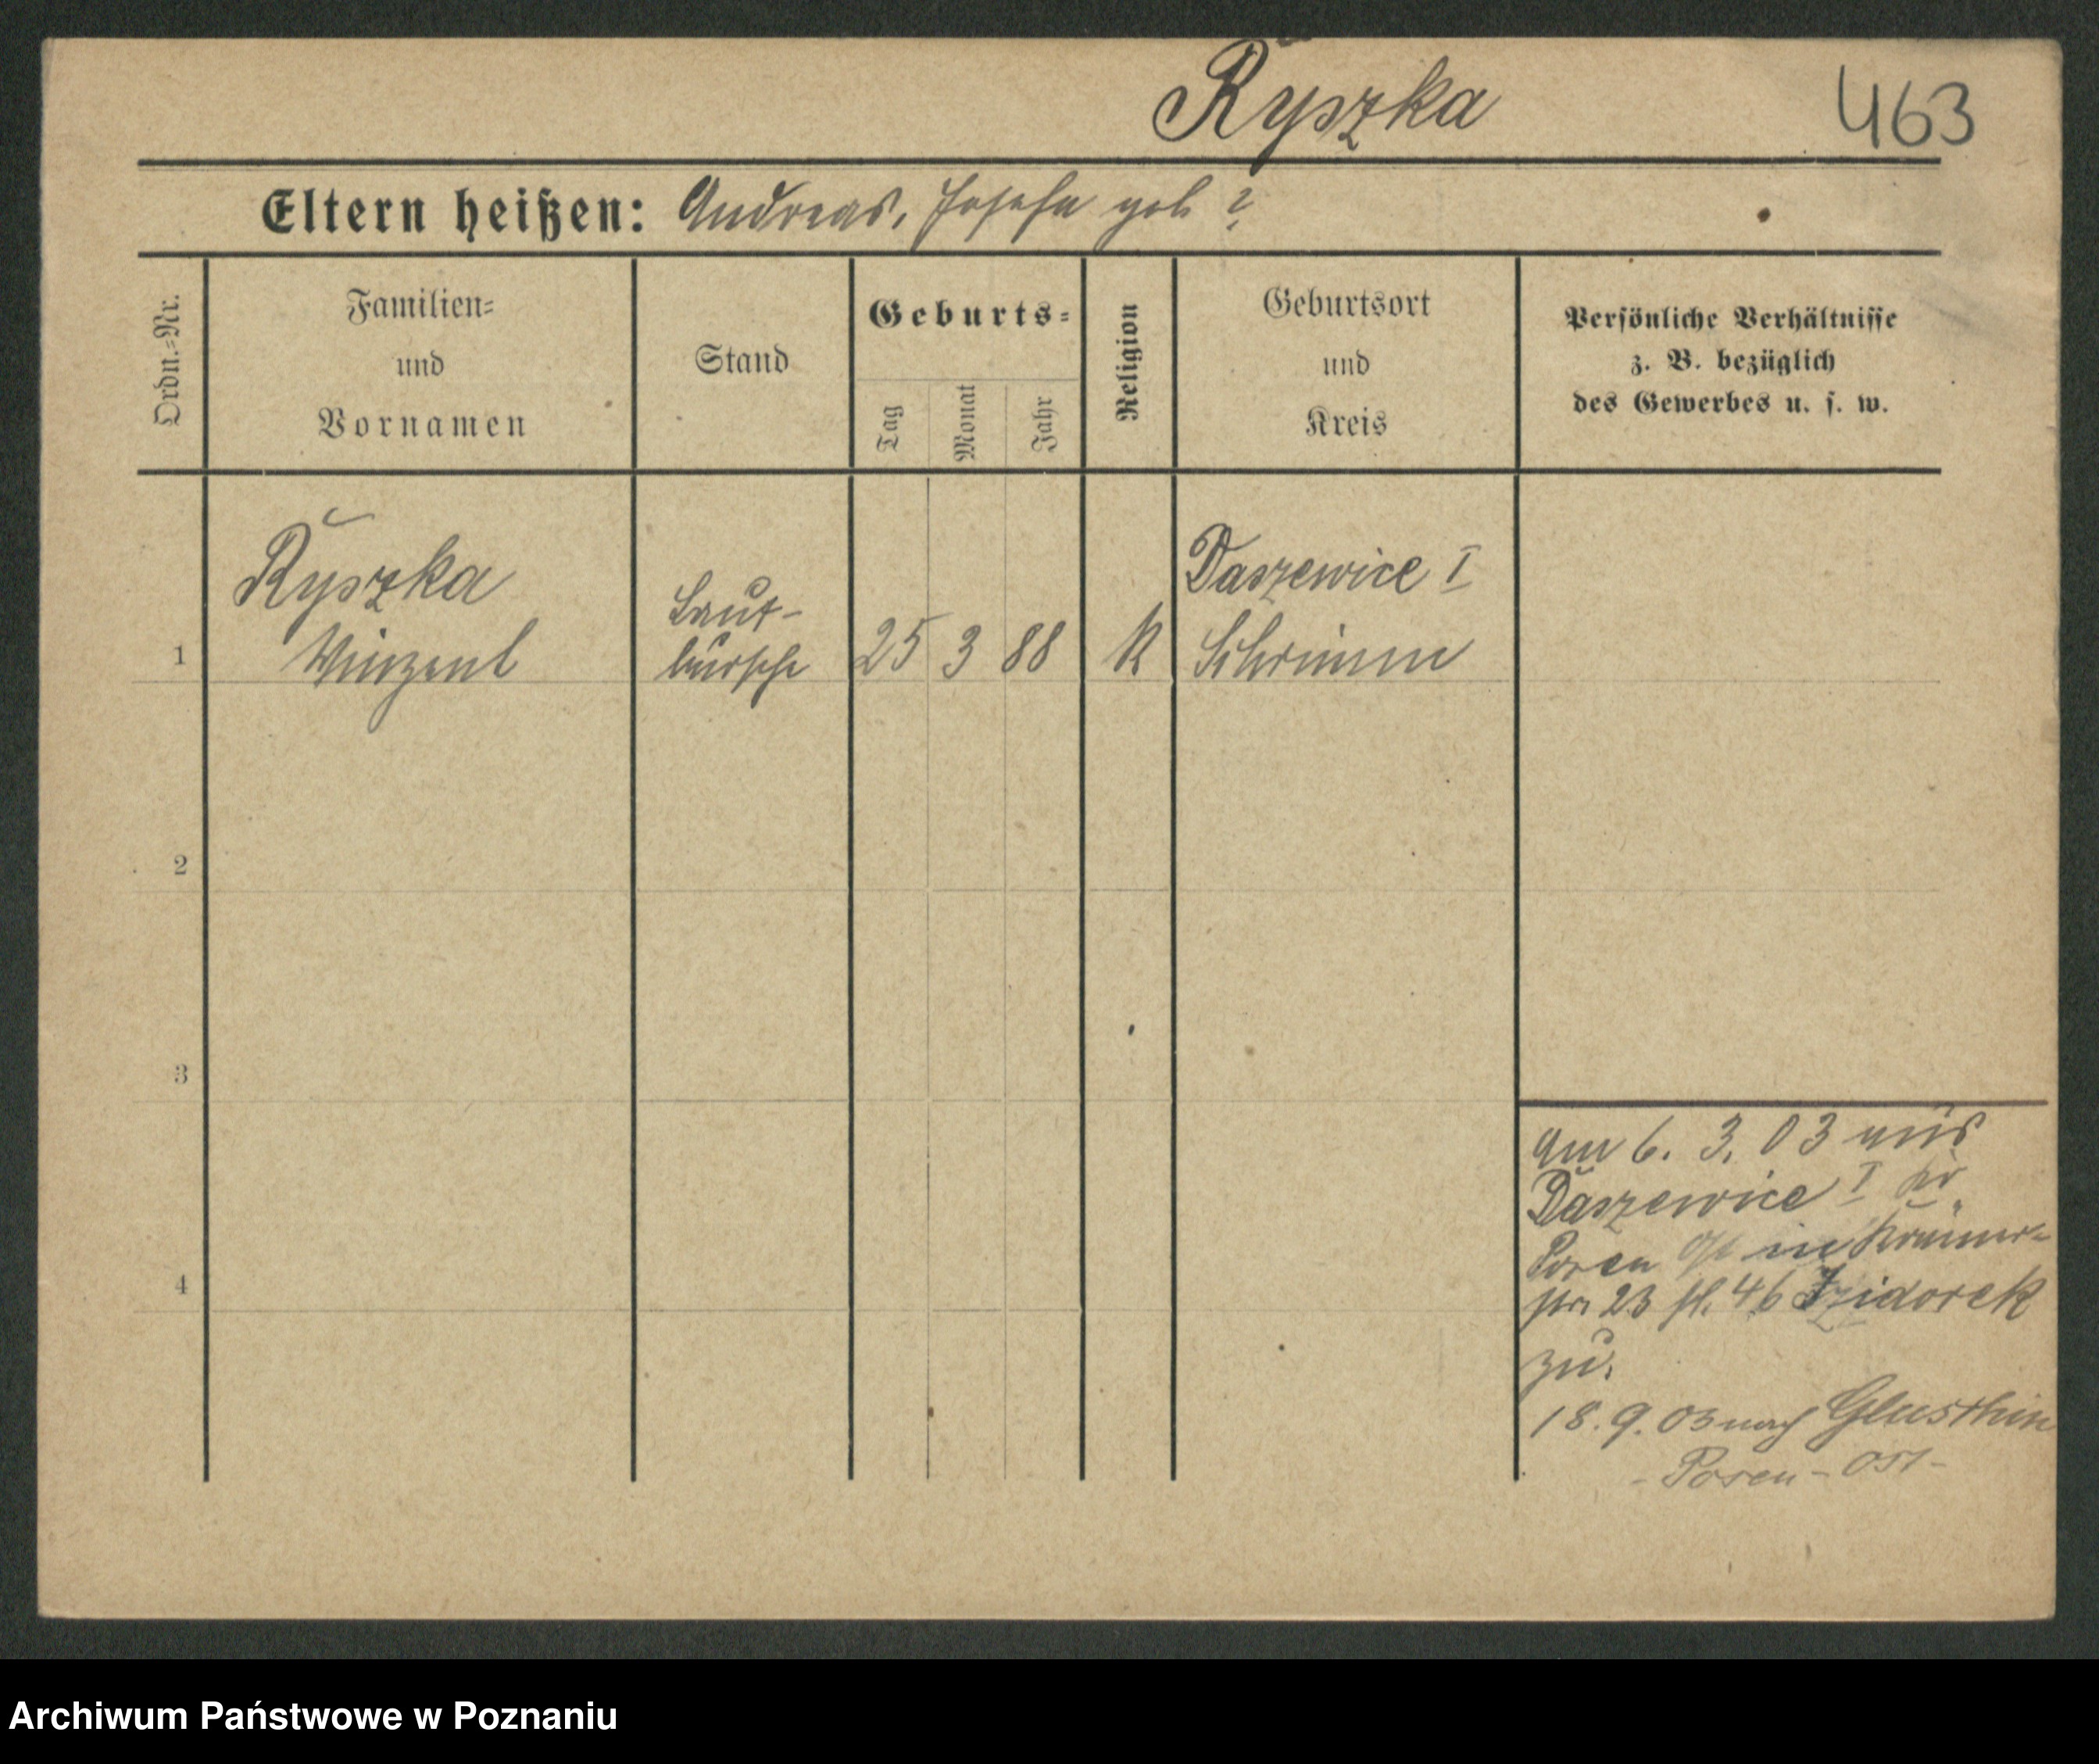 Ryszka
463
Eltern heißen: Andreas, Josefa geb ?
Ordn.=Nr.
Familien=
und
Vornamen
Stand
Geburts=
Tag
Monat
Jahr
Religion
Geburtsort
und
Kreis
Persönliche Verhältnisse
z. B. bezüglich
des Gewerbes u. s. w.
1
Ryszka
Vinzent
Lauf-
bursche
25 3 88
K
Daszewice I
Schrimm
2
3
4
Am 6. 3. 03 aus
Daszewice I Kr
Posen Ost in Krämer=
str. 23 bl. 46 Izidorek
zu.
18. 9. 03 nach
- Posen - Ost -
Archiwum Państwowe w Poznaniu